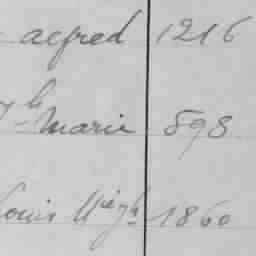 alfred 1216
Marie 898
Louis 1860